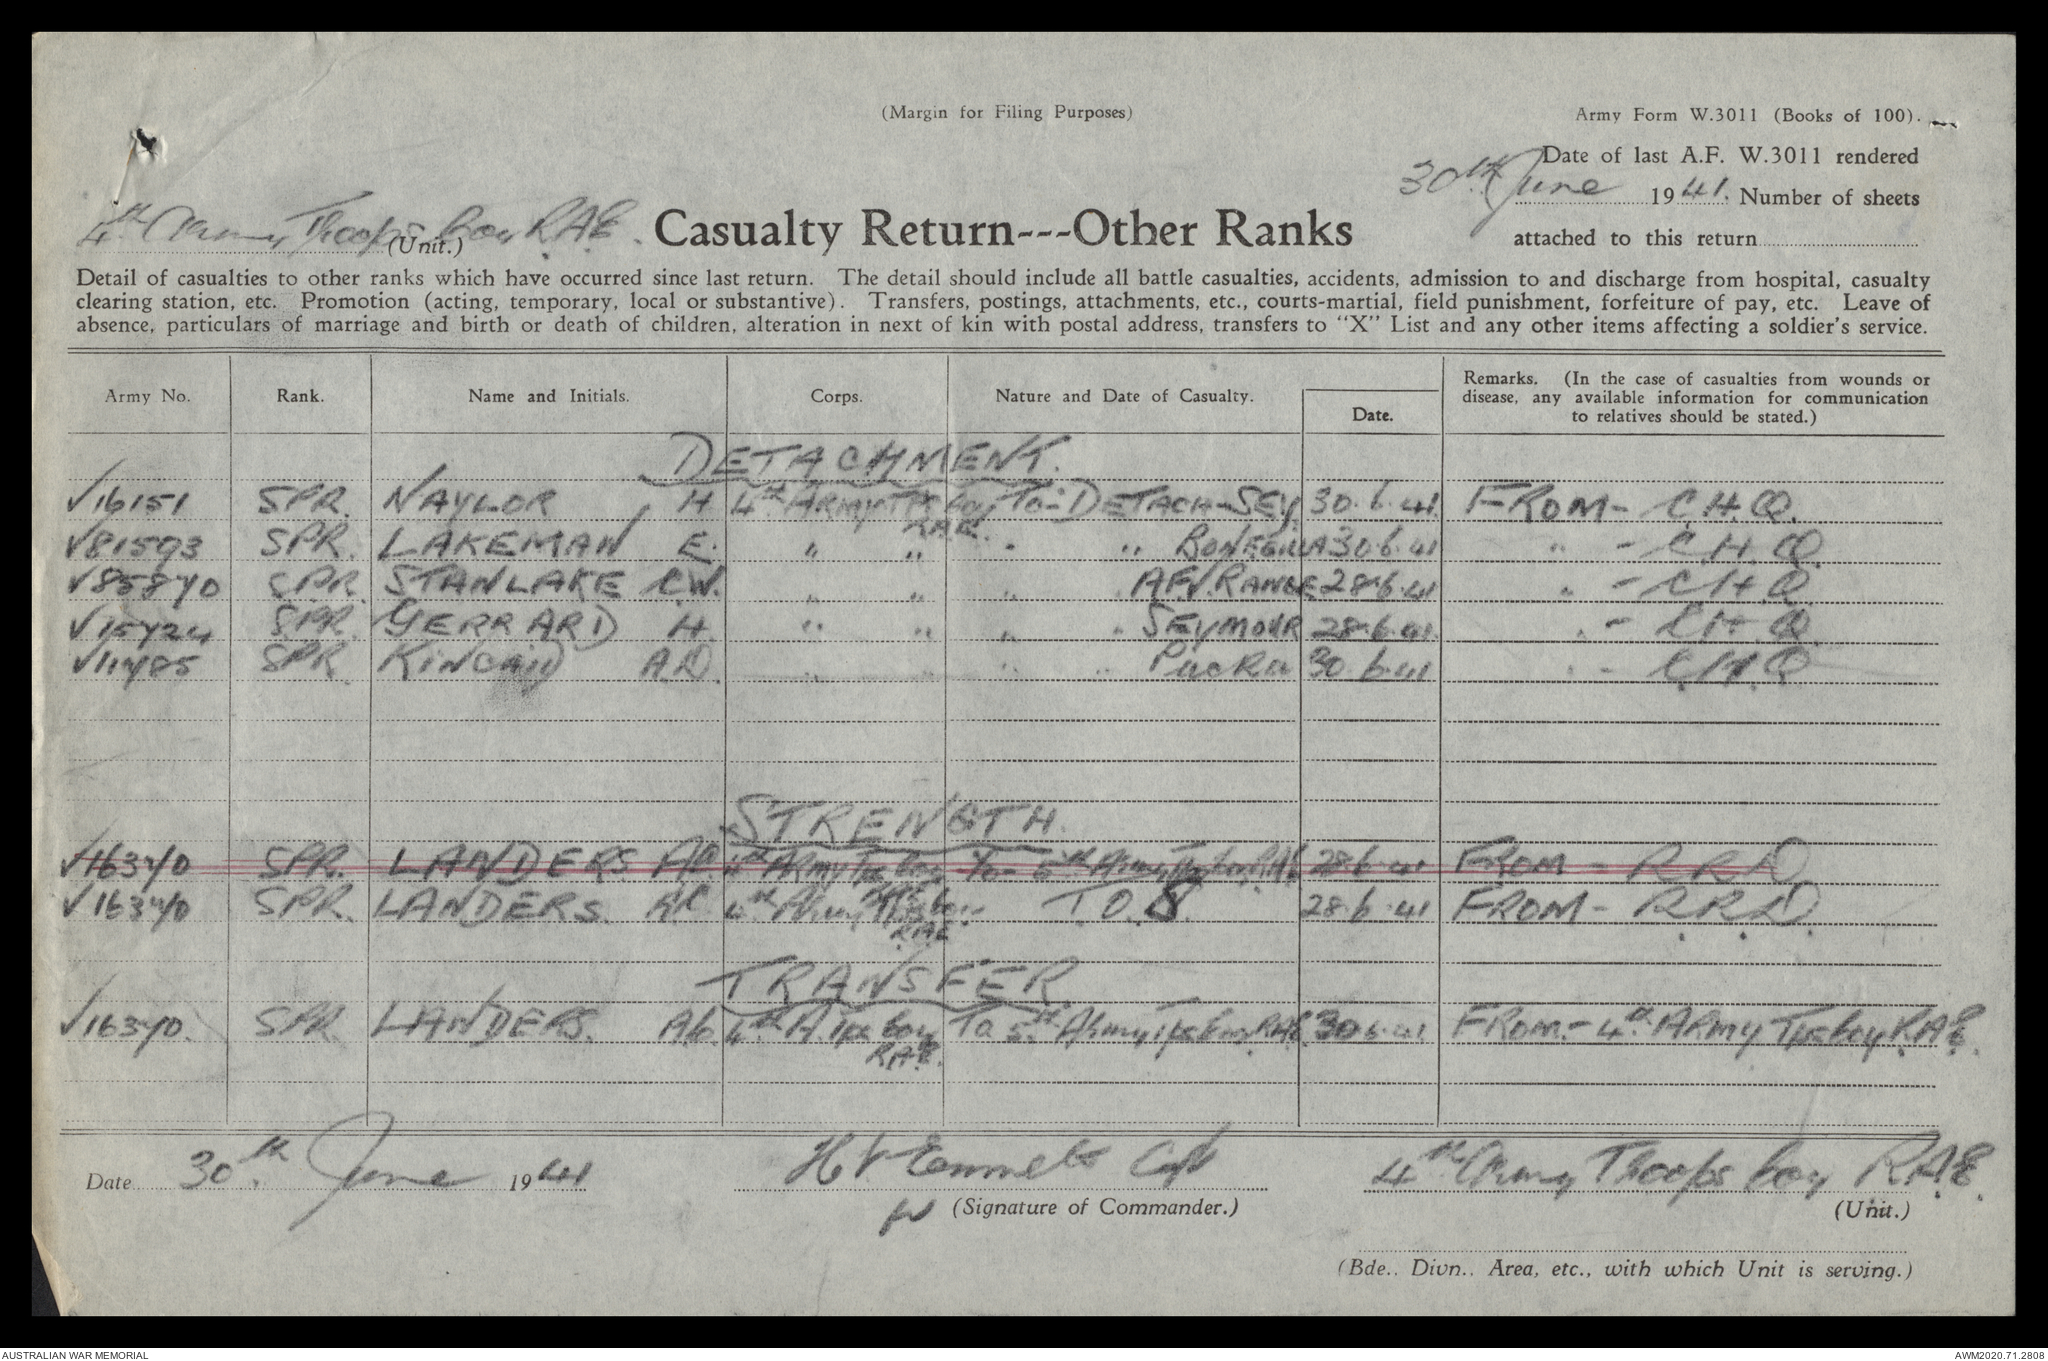 (Margin for Filing Purposes)
Army Form W.3011 (Books of 100).
Date of last A.F. W.3011 rendered
30th June 1941. Number of sheets
attached to this return
4th Army Troops Coy RAE.
(Unit.)
Casualty Return---Other Ranks
Detail of casualties to other ranks which have occurred since last return. The detail should include all battle casualties, accidents, admission to and discharge from hospital, casualty
clearing station, etc. Promotion (acting, temporary, local or substantive). Transfers, postings, attachments, etc., courts-martial, field punishment, forfeiture of pay, etc. Leave of
absence, particulars of marriage and birth or death of children, alteration in next of kin with postal address, transfers to "X" List and any other items affecting a soldier's service.
Army No. Rank. Name and Initials. Corps. Nature and Date of Casualty. Date. Remarks. (In the case of casualties from wounds or
disease, any available information for communication
to relatives should be stated.)
DETACHMENT.
V16151 SPR. NAYLOR H 4th ARMY TPS Coy RAE. To:- DETACH-SEY 30.6.41 FROM - C.H.Q.
V81593 SPR. LAKEMAN E. " " " " BONEGILLA 30.6.41 " - C.H.Q
V85870 SPR. STANLAKE C.W. " " " " A.F.V. RANGE 28.6.41 " - C.H.Q
V15724 SPR. GERRARD H. " " " " SEYMOUR 28.6.41 " - C.H.Q
V11785 SPR. KINCAID A.D. " " " " PUCKA 30.6.41 " - C.H.Q
STRENGTH.
V16370 SPR. LANDERS AC. 4th ARMY Tps Coy RAE To - 5th Army Tps Coy RAE 28.6.41 FROM - R.R.D
V16370 SPR. LANDERS. AC. 4th Army Tps Coy RAE T.O.S. 28.6.41 FROM - R.R.D.
TRANSFER
V16370. SPR LANDERS. AC. 4th A. Tps Coy RAE. To 5th Army Tps Coy RAE 30.6.41 FROM - 4th ARMY Tps Coy RAE.
Date 30th June 1941
H V Emmett Capt
(Signature of Commander.)
4th Army Troops Coy RAE.
(Unit.)
(Bde., Divn., Area, etc., with which Unit is serving.)
AUSTRALIAN WAR MEMORIAL
AWM2020.71.2808